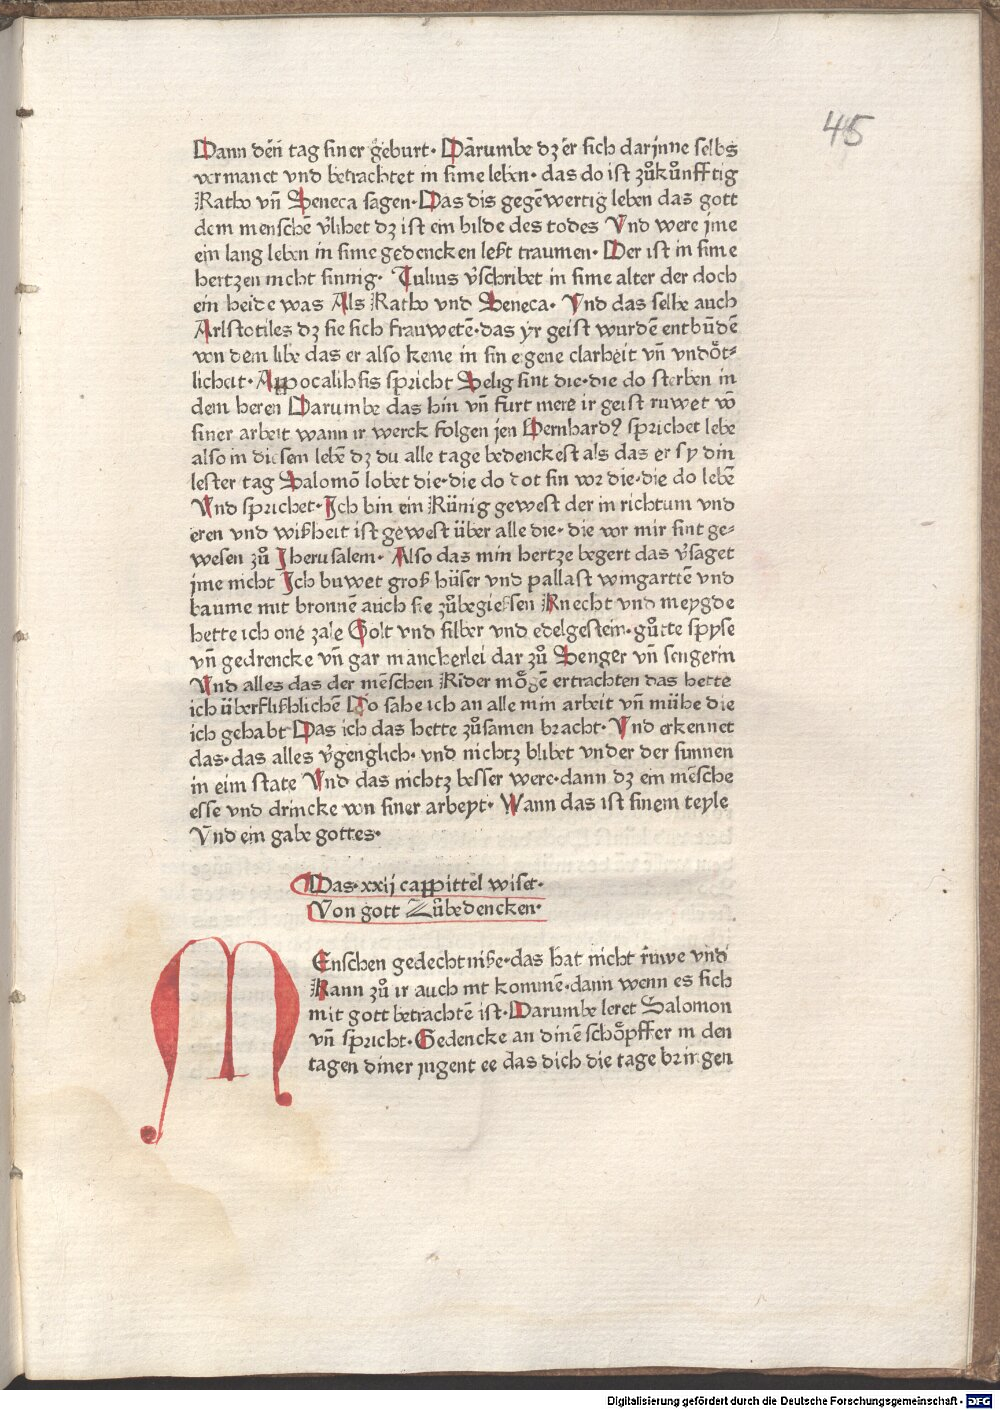 45
Dann dēn tag siner geburt· Darumbe dz er sich darjnne selbs
vermanet vnd betrachtet in sime leben· das do ist zůkůnfftig
Katho vn̄ Seneca sagen· Das dis gegēwertig leben das gott
dem menschē v̓lihet dz ist ein bilde des todes Vnd were jme
ein lang leben in sime gedencken leßt traumen· Der ist in sime
hertzen nicht sinnig· Tulius v̓schribet in sime alter der doch
ein heide was Als Katho vnd Seneca· Vnd das selbe auch
Arlstotiles dz sie sich frauwetē· das yr geist wurdē entbūdē
von dem libe das er also keme in sin eigene clarheit vn̄ vndǒt⸗
licheit· Appocalihsis spricht Selig sint die· die do sterben in
dem heren Darumbe das hin vn̄ furt mere ir geist ruwet vō
siner arbeit wann ir werck folgen jen Bernhardꝰ sprichet lebe
also in diesem lebē dz du alle tage bedenckest als das er sy din
lester tag Salomō lobet die· die do tot sin vor die· die do lebē
Vnd sprichet· Ich bin ein Künig gewest der in richtum vnd
eren vnd wißheit ist gewest über alle die· die vor mir sint ge⸗
wesen zů Jherusalem· Also das min hertze begert das v̓saget
jme nicht Ich buwet groß hüser vnd pallast wingarttē vnd
baume mit bronnē auch sie zůbegiessen Knecht vnd meygde
hette ich one zale Golt vnd silber vnd edelgestein· gůtte spyse
vn̄ gedrencke vn̄ gar mancherlei dar zů Senger vn̄ sengerin
Vnd alles das der mēschen Kider mǒgē ertrachten das hette
ich überflißlichē Do sahe ich an alle min arbeit vn̄ mühe die
ich gehabt Das ich das hette zůsamen bracht· Vnd erkennet
das· das alles v̓genglich· vnd nichtz blibet vnder der sunnen
in eim state Vnd das nichtz besser were· dann dz ein mēsche
esse vnd drincke von siner arbeyt· Wann das ist sinem teyle
Vnd ein gabe gottes·
Das· xxij cappittel wiset·
Von gott Zůbedencken·
MEnschen gedechtniße· das hat nicht růwe vnd
Kann zů ir auch nit kommē· dann wenn es sich
mit gott betrachtē ist· Darumbe leret Salomon
vn̄ spricht· Gedencke an dinē schǒpffer in den
tagen diner jugent ee das dich die tage bringen
Digitalisierung gefördert durch die Deutsche Forschungsgemeinschaft - DFG